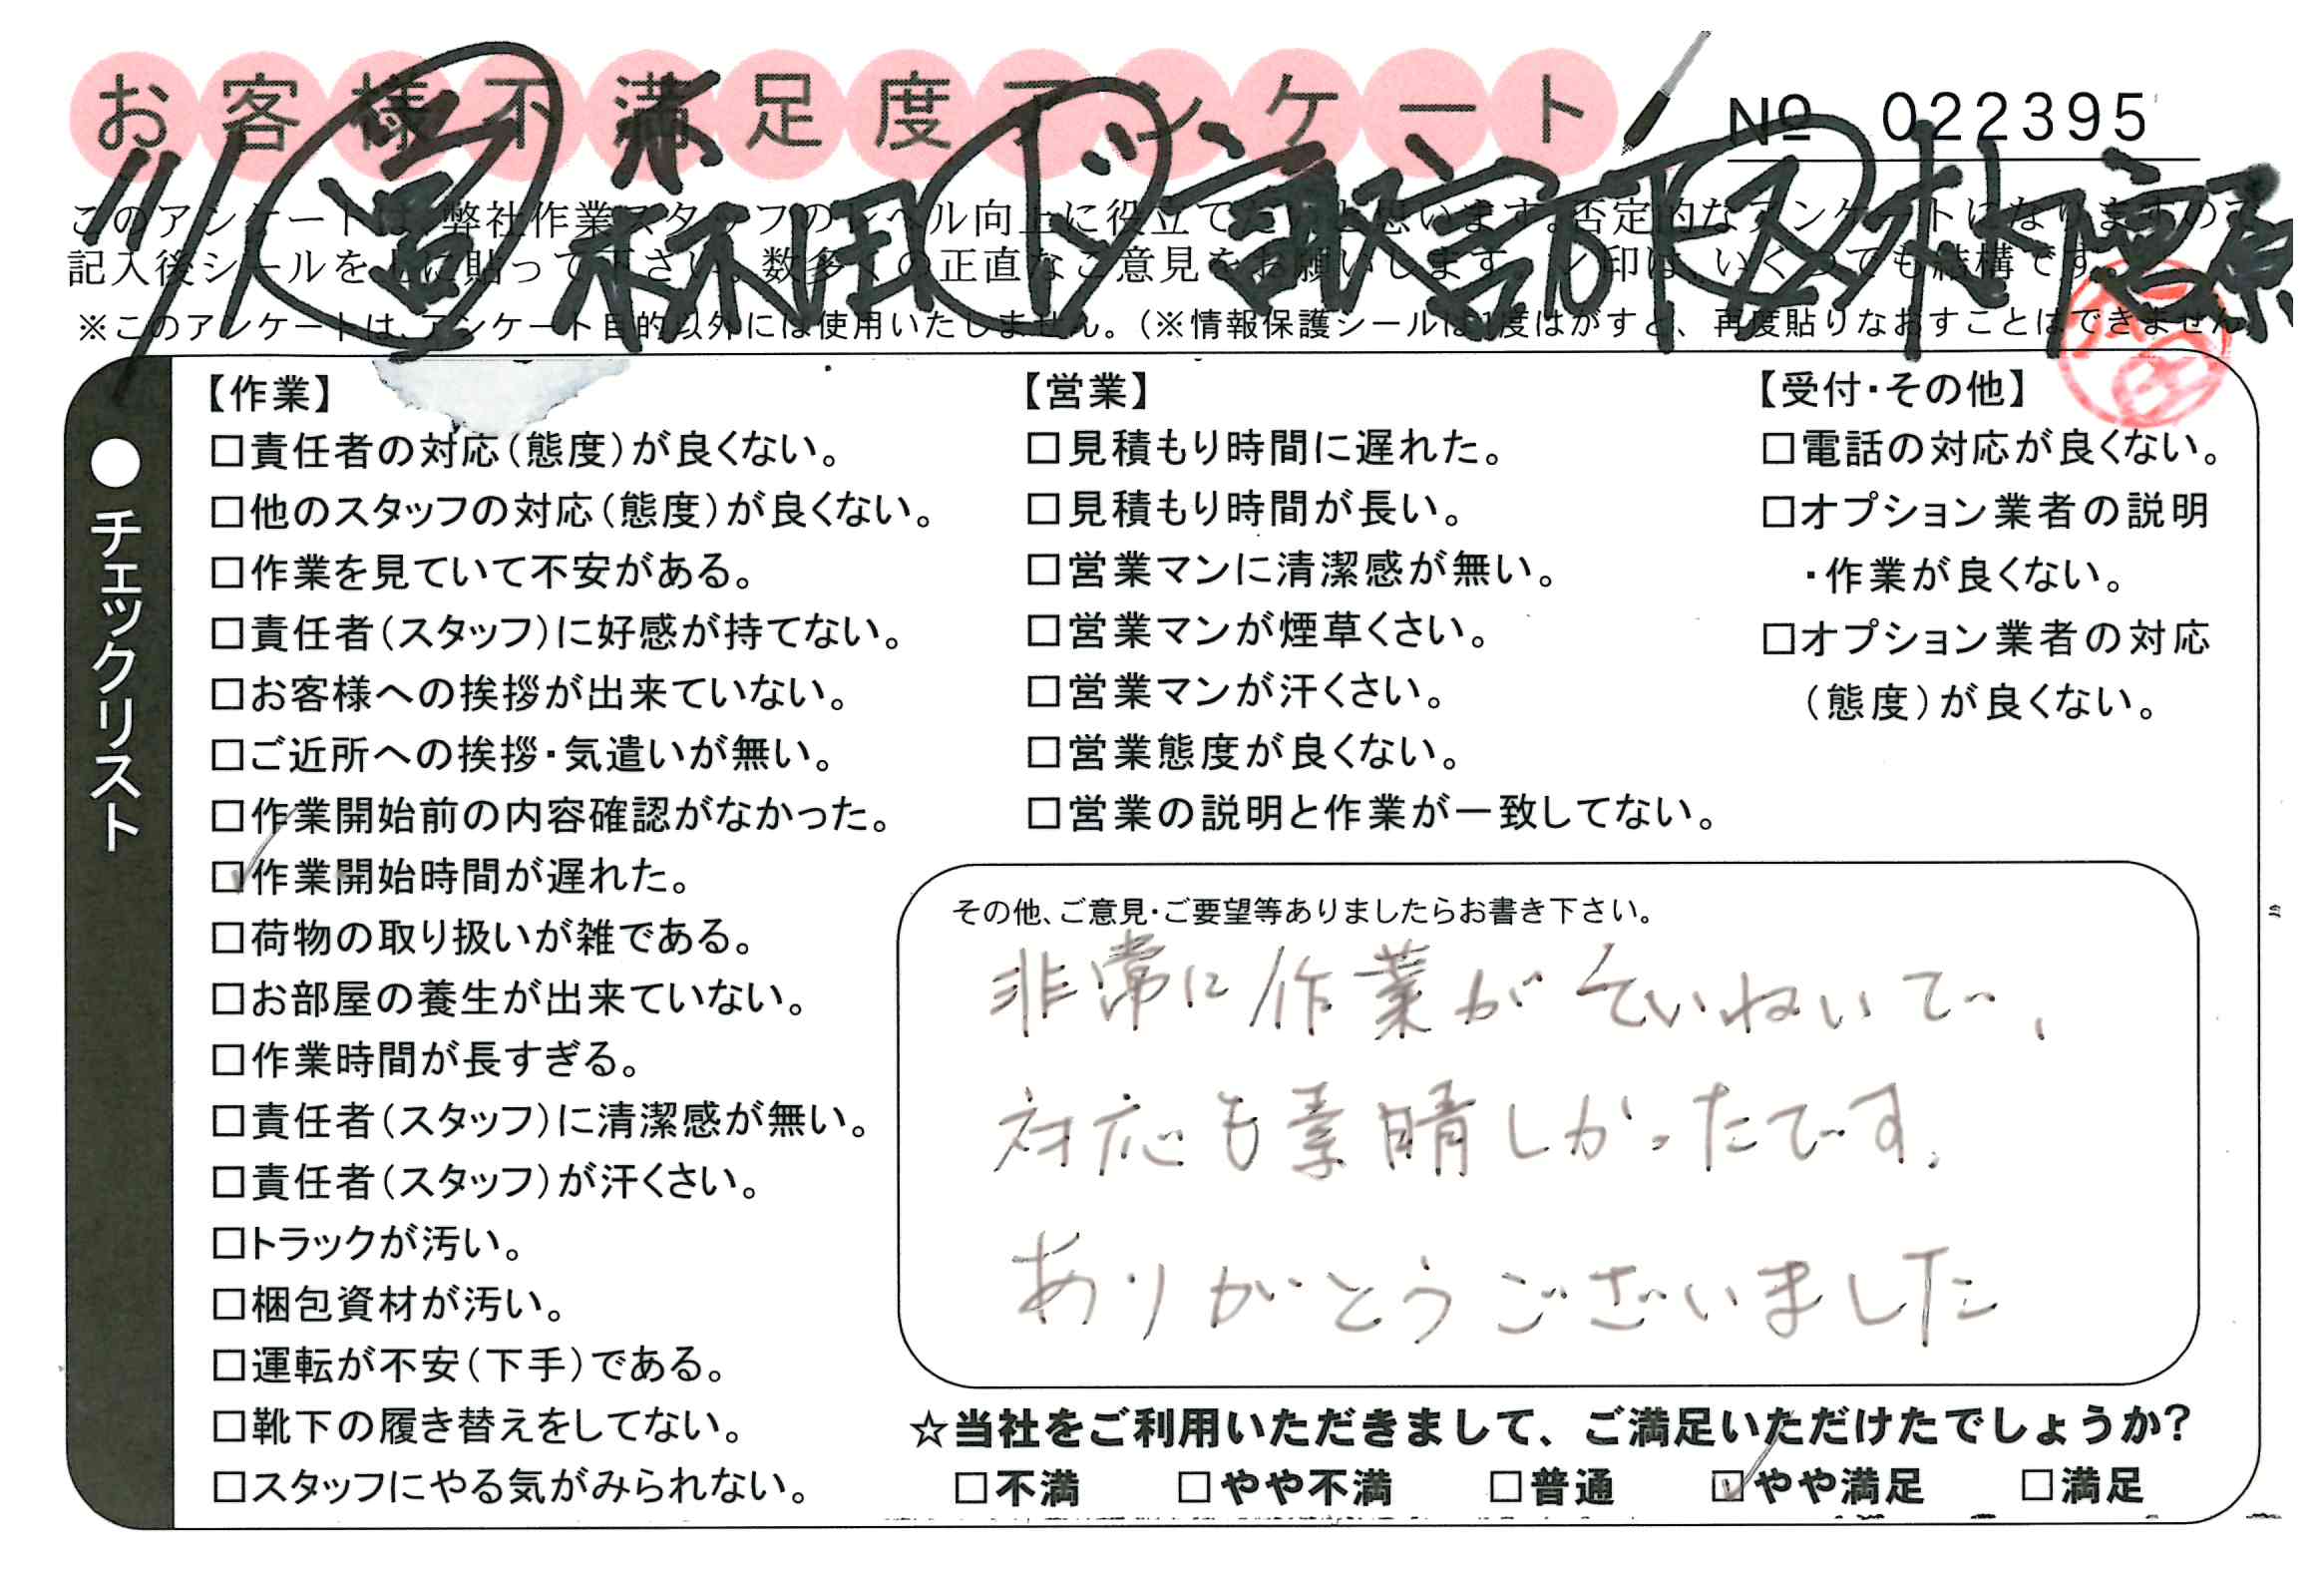 お客様不満足度アンケート
№ 022395
このアンケートは、弊社作業スタッフのレベル向上に役立てたいと思います。否定的なアンケートになりますので
記入後シールを上に貼って下さい。数多くの正直なご意見をお願いします。レ印は、いくつでも結構です。
※このアンケートは、アンケート目的以外には使用いたしません。(※情報保護シールは1度はがすと、再度貼りなおすことはできません
●チェックリスト
【作業】
□責任者の対応(態度)が良くない。
□他のスタッフの対応(態度)が良くない。
□作業を見ていて不安がある。
□責任者(スタッフ)に好感が持てない。
□お客様への挨拶が出来ていない。
□ご近所への挨拶・気遣いが無い。
□作業開始前の内容確認がなかった。
☑作業開始時間が遅れた。
□荷物の取り扱いが雑である。
□お部屋の養生が出来ていない。
□作業時間が長すぎる。
□責任者(スタッフ)に清潔感が無い。
□責任者(スタッフ)が汗くさい。
□トラックが汚い。
□梱包資材が汚い。
□運転が不安(下手)である。
□靴下の履き替えをしてない。
□スタッフにやる気がみられない。
【営業】
□見積もり時間に遅れた。
□見積もり時間が長い。
□営業マンに清潔感が無い。
□営業マンが煙草くさい。
□営業マンが汗くさい。
□営業態度が良くない。
□営業の説明と作業が一致してない。
【受付・その他】
□電話の対応が良くない。
□オプション業者の説明
・作業が良くない。
□オプション業者の対応
(態度)が良くない。
その他、ご意見・ご要望等ありましたらお書き下さい。
非常に作業がていねいで、
対応も素晴しかったです。
ありがとうございました
☆当社をご利用いただきまして、ご満足いただけたでしょうか?
□不満 □やや不満 □普通 ☑やや満足 □満足